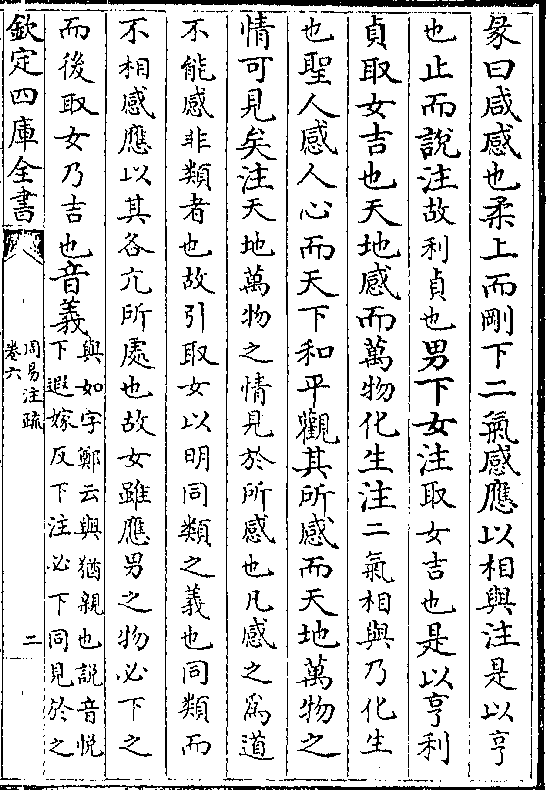 彖曰咸感也柔上而剛下二氣感應以相與注是以亨
也止而說注故利貞也男下女注取女吉也是以亨利
貞取女吉也天地感而萬物化生注二氣相與乃化生
也聖人感人心而天下和平觀其所感而天地萬物之
情可見矣注天地萬物之情見於所感也凡感之為道
不能感非類者也故引取女以明同類之義也同類而
不相感應以其各亢所處也故女雖應男之物必下之
而後取女乃吉也音義與如字鄭云與猶親也說音悅
下遐嫁反下注必下同見於之
欽定四庫全書
周易注疏
卷六
二